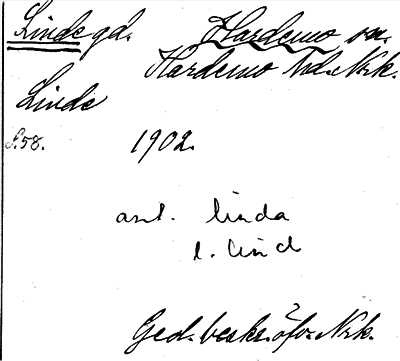 Linde gd. Hardemo sn.
Hardemo hd. Nrk.
Linde
S. 58. 1902.
ant. linda
l. lind
Ged. beskr. öfv. Nrk.